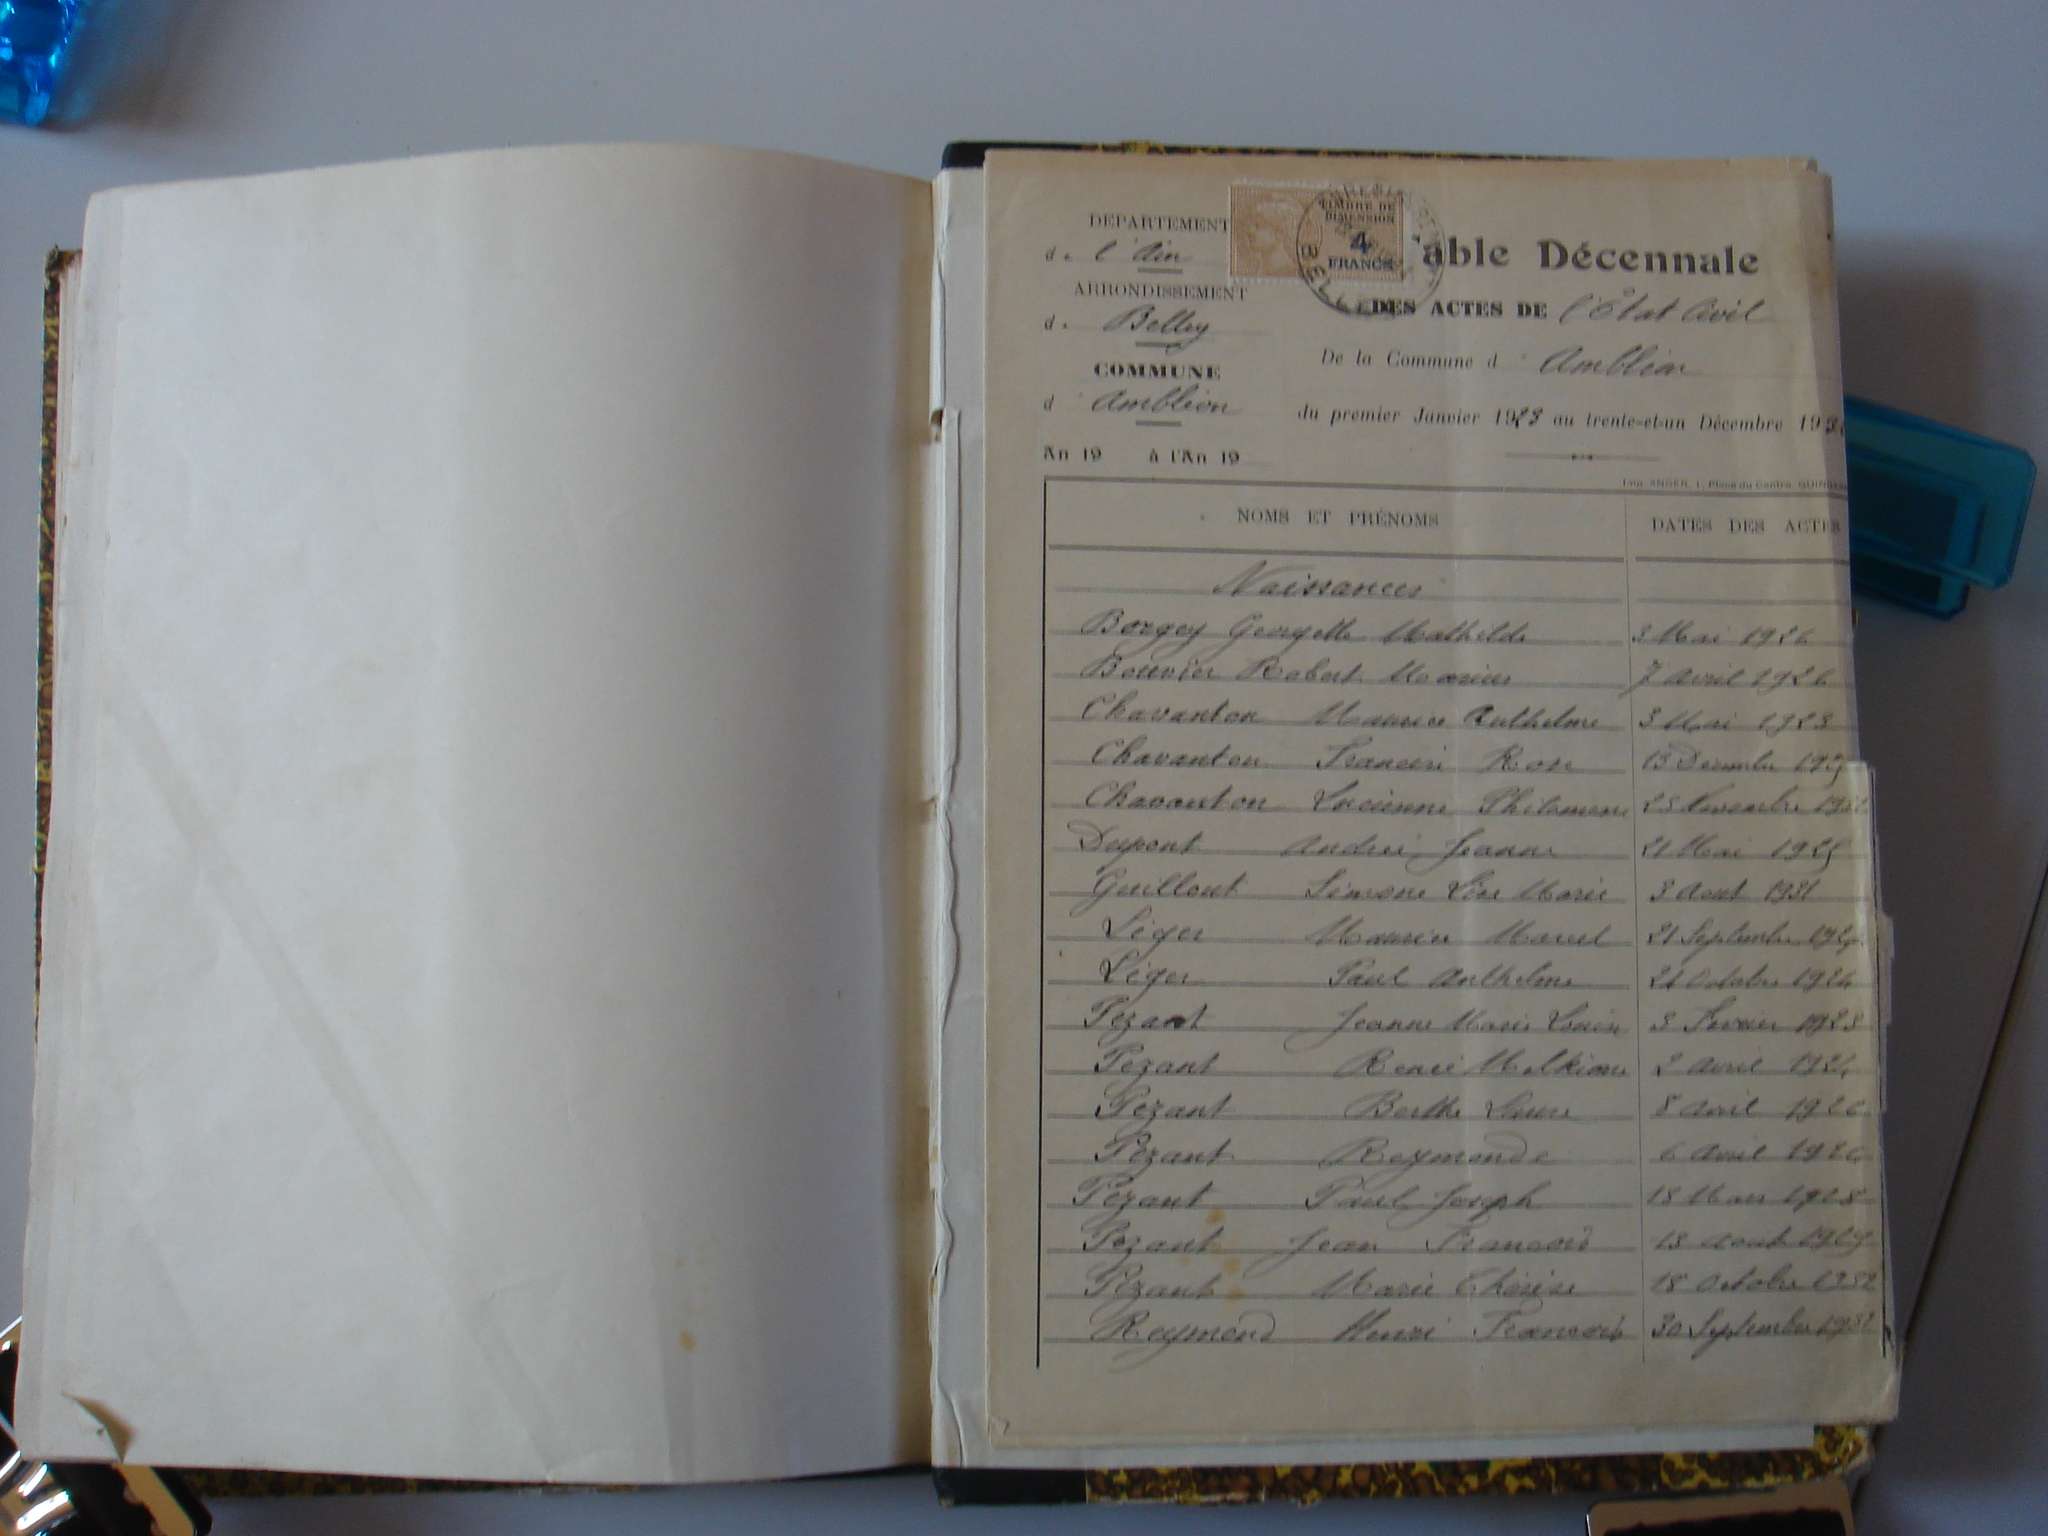 DÉPARTEMENT
de l'Ain
TIMBRE DE
DIMENSION
4
FRANCS
Table Décennale
ARRONDISSEMENT
DES ACTES DE l'État Civil
de Belley
De la Commune d' Ambléon
COMMUNE
d' Ambléon
du premier Janvier 1923 au trente-et-un Décembre 19
An 19 à l'An 19
NOMS ET PRÉNOMS DATES DES ACTES
Naissances
Borgey Georgette Mathilde 3 Mai 1926
Bouvier Robert Marius 7 Avril 1926
Chavanton Maurice Anthelme 3 Mai 1923
Chavanton Francine Rose 13 Décembre
Chavanton Lucienne Philomène 25 Novembre
Dupont Andrée Jeanne 21 Mai 1925
Guillout Simone Line Marie 3 Août 1931
Léger Maurice Marcel 21 Septembre
Léger Paul Anthelme 21 Octobre 1926
Pezant Jeanne Marie Louise 3 Février 1923
Pezant René 2 Avril
Pezant Berthe 8 Avril 1926
Pezant Raymonde 6 Avril 1926
Pezant Paul Joseph 18 Mars 1928
Pezant Jean François 13 Août 1929
Pezant Marie Thérèse 18 Octobre 1932
Raymond Henri François 30 Septembre 1932